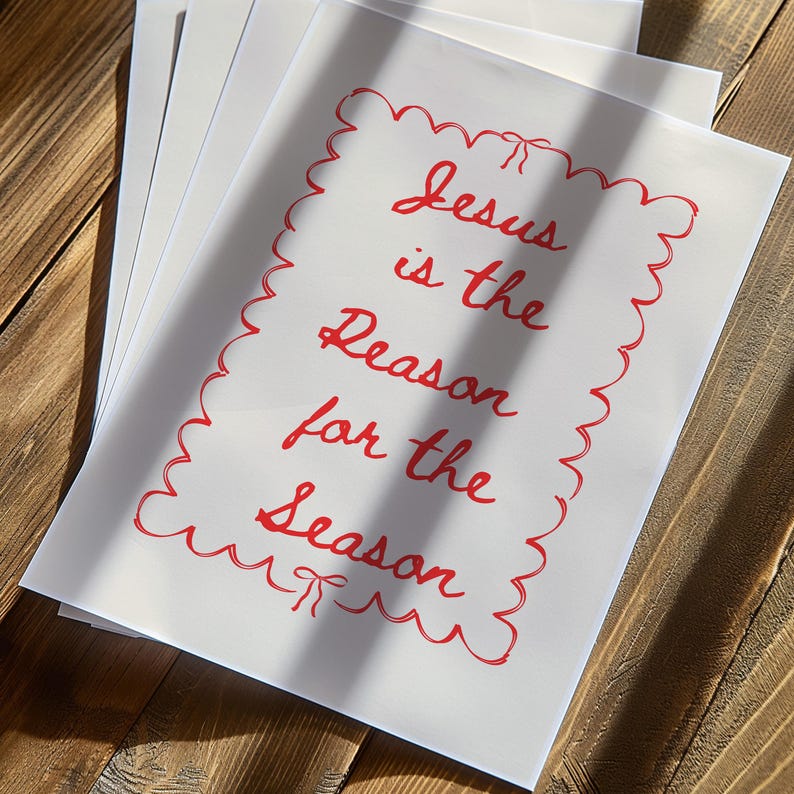 Jesus
is the
Reason
for the
Season